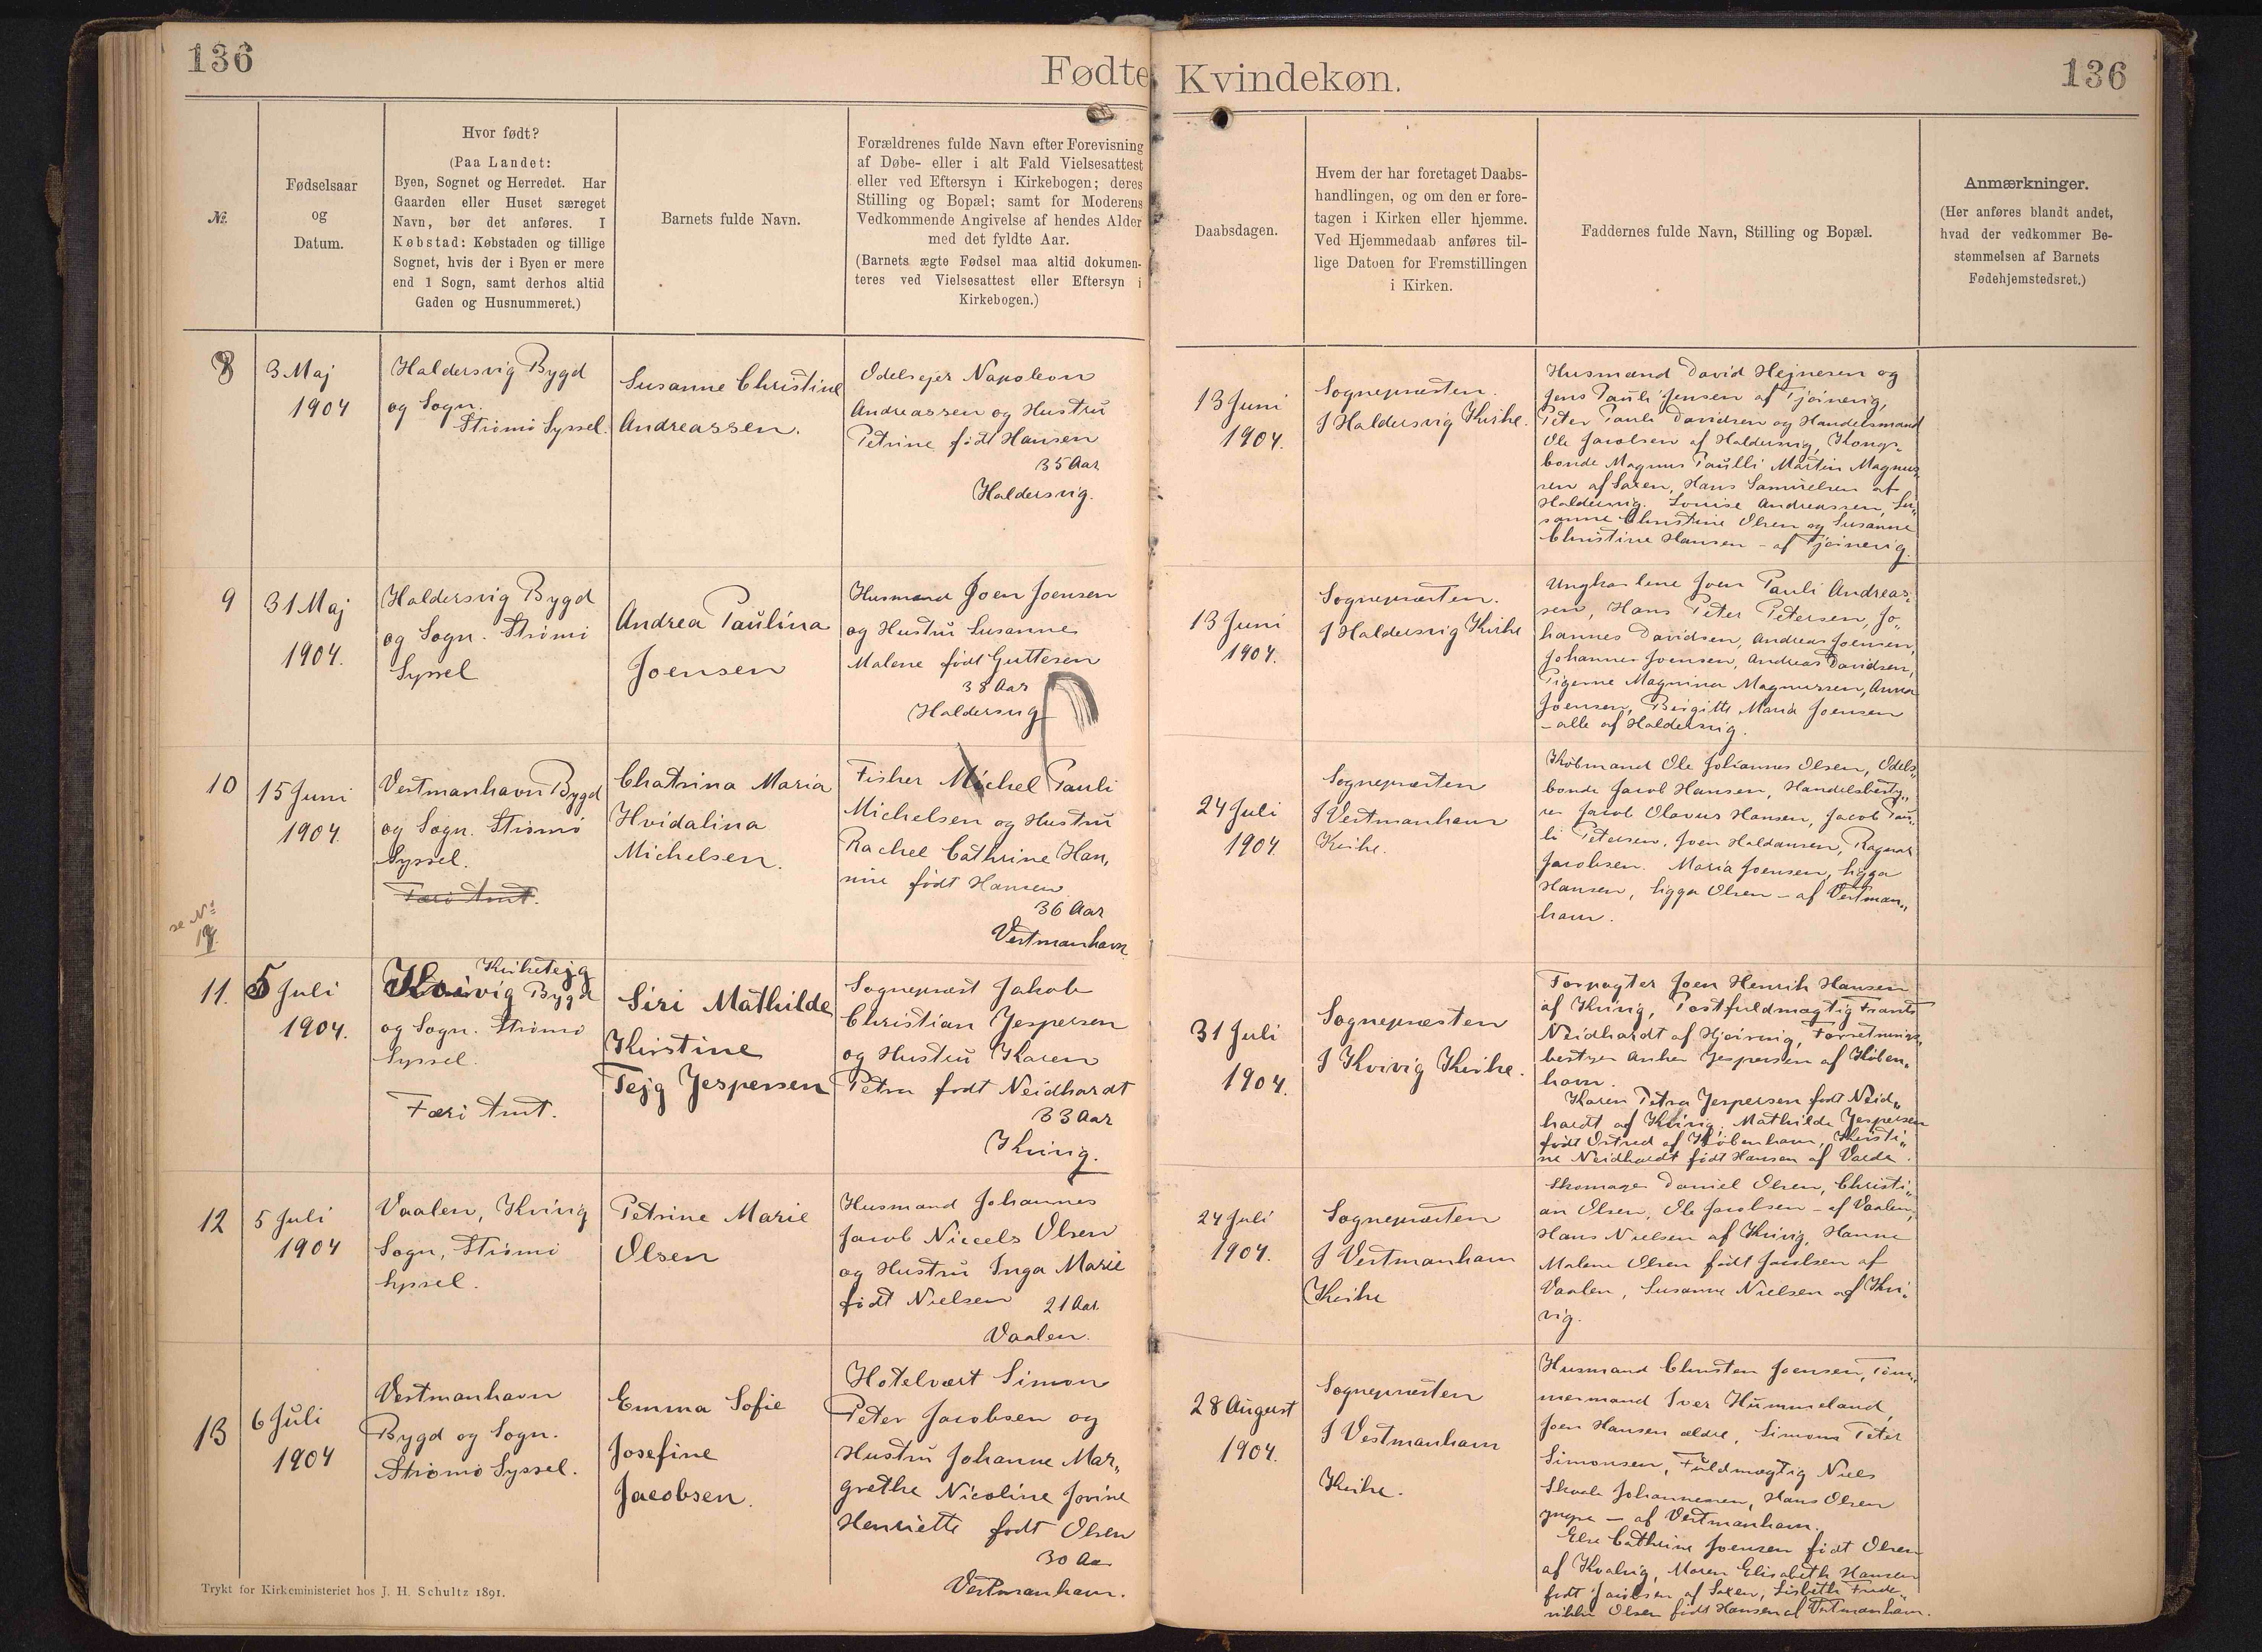 136
Fødte
Kvindekøn.
136
№
Fødselsaar
og
Datum.
Hvor født?
(Paa Landet:
Byen, Sognet og Herredet. Har
Gaarden eller Huset særeget
Navn, bør det anføres. I
Købstad: Købstaden og tillige
Sognet, hvis der i Byen er mere
end 1 Sogn, samt derhos altid
Gaden og Husnummeret.)
Barnets fulde Navn.
Forældrenes fulde Navn efter Forevisning
af Døbe- eller i alt Fald Vielsesattest
eller ved Eftersyn i Kirkebogen; deres
Stilling og Bopæl; samt for Moderens
Vedkommende Angivelse af hendes Alder
med det fyldte Aar.
(Barnets ægte Fødsel maa altid dokumen-
teres ved Vielsesattest eller Eftersyn i
Kirkebogen.)
Daabsdagen.
Hvem der har foretaget Daabs-
handlingen, og om den er fore-
tagen i Kirken eller hjemme.
Ved Hjemmedaab anføres til-
lige Datoen for Fremstillingen
i Kirken.
Faddernes fulde Navn, Stilling og Bopæl.
Anmærkninger.
(Her anføres blandt andet,
hvad der vedkommer Be-
stemmelsen af Barnets
Fødehjemstedsret.)
8
3 Maj
1904
Haldersvig Bygd
og Sogn.
Strømø Syssel.
Susanne Christine
Andreassen.
Odelsejer Napoleon
Andreassen og Hustru
Petrine født Hansen
35 Aar
Haldersvig.
13 Juni
1904.
Sognepræsten.
I Haldersvig Kirke.
Husmænd David Hejnesen og
Jens Pauli Jensen af Tjørnevig,
Peter Pauli Davidsen og Handelsmand
Ole Jacobsen af Haldersvig, Kongs-
bonde Magnus Paulli Martin Magnus-
sen af Saxen, Hans Samuelsen af
Haldersvig. Louise Andreassen, Su-
sanne Christine Olsen og Susanne
Christine Hansen - af Tjørnevig.
9
31 Maj
1904.
Haldersvig Bygd
og Sogn. Strømø
Syssel
Andrea Paulina
Joensen
Husmand Joen Joensen
og Hustru Susanne
Malene født Guttesen
38 Aar
Haldersvig
13 Juni
1904.
Sognepræsten.
I Haldersvig Kirke
Ungkarlene Joen Pauli Andreas-
sen, Hans Peter Petersen, Jo-
hannes Davidsen, Andreas Joensen,
Johannes Joensen, Andreas Davidsen,
Pigerne Magnina Magnussen, Anna
Joensen, Birgitte Maria Joensen
- alle af Haldersvig.
10
15 Juni
1904.
Vestmanhavn Bygd
og Sogn. Strømø
Syssel.
Færø Amt.
Chatrina Maria
Hvidalina
Michelsen.
Fisker Michel Pauli
Michelsen og Hustru
Rachel Cathrine Han-
nine født Hansen
36 Aar
Vestmanhavn
24 Juli
1904.
Sognepræsten
I Vestmanhavn
Kirke.
Købmand Ole Johannes Olsen, Odels-
bonde Jacob Hansen, Handelsbesty-
rer Jacob Olavus Hansen, Jacob Pau-
li Petersen, Joen Haldansen, Ragnar
Jacobsen. Maria Joensen, Sigga
Hansen, Sigga Olsen - af Vestman-
havn.
se №
11.
5 Juli
1904.
Kirketejg
Kvivig Bygd
og Sogn. Strømø
Syssel.
Færø Amt.
Siri Mathilde
Kirstine
Tejg Jespersen
Sognepræst Jakob
Christian Jespersen
og Hustru Karen
Petra født Neidhardt
33 Aar
Kvivig.
31 Juli
1904.
Sognepræsten
I Kvivig Kirke.
Forpagter Joen Henrik Hansen
af Kvivig, Postfuldmægtig Frants
Neidhardt af Hjørring, Forretnings-
bestyrer Anker Jespersen af Køben-
havn.
Karen Petra Jespersen født Neid-
hardt af Kvivig, Mathilde Jespersen
født Ostred af København, Kirsti-
ne Neidhardt født Hansen af Varde.
12
5 Juli
1904
Vaalen, Kvivig
Sogn, Strømø
Syssel.
Petrine Marie
Olsen
Husmand Johannes
Jacob Niceels Olsen
og Hustru Inga Marie
født Nielsen 21 Aar.
Vaalen.
24 Juli
1904.
Sognepræsten
I Vestmanhavn
Kirke
Skomager Daniel Olsen, Christi-
an Olsen, Ole Jacobsen - af Vaalen,
Hans Nielsen af Kvivig, Hanne
Malene Olsen født Jacobsen af
Vaalen, Susanne Nielsen af Kvi-
vig.
13
6 Juli
1904
Vestmanhavn
Bygd og Sogn.
Strømø Syssel.
Emma Sofie
Josefine
Jacobsen.
Hotelvært Simon
Peter Jacobsen og
Hustru Johanne Mar-
grethe Nicoline Jovine
Henriette født Olsen
30 Aar
Vestmanhavn.
28 August
1904.
Sognepræsten
I Vestmanhavn
Kirke.
Husmand Christen Joensen, Tøm-
mermand Iver Hummeland,
Joen Hansen ældre, Simons Peter
Simonsen, Fuldmægtig Niels
Skaale Johannesen, Hans Olsen
yngre - af Vestmanhavn.
Else Cathrine Joensen født Olsen
af Kvalvig, Maren Elisabeth Hansen
født Jacobsen af Saxen, Lisbeth Frede-
rikke Olsen født Hansen af Vestmanhavn.
Trykt for Kirkeministeriet hos J. H. Schultz 1891.